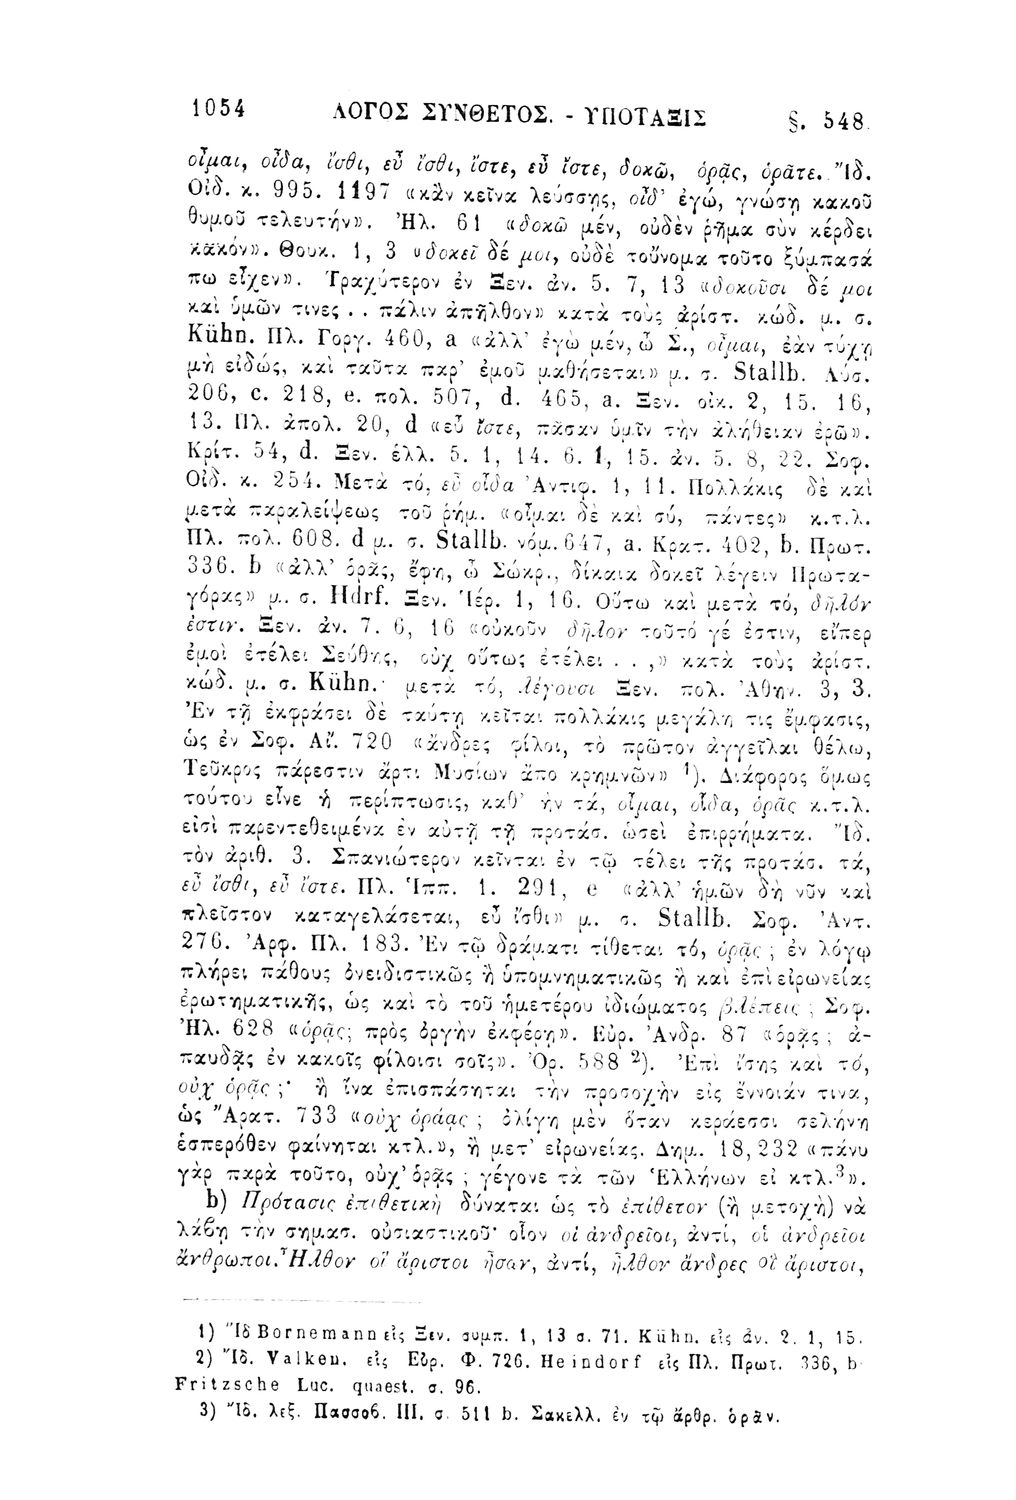 1054 ΛΟΓΟΣ ΣΥΝΘΕΤΟΣ. - ΥΠΟΤΑΞΙΣ §. 548.
οἶμαι, οἶδα, ἴσθι, εὖ ἴσθι, ἴστε, εὖ ἴστε, δοκῶ, ὁρᾷς, ὁρᾶτε. Ἴδ.
Οἰδ. κ. 995. 1197 «κἂν κεῖνα λεύσσῃς, οἶδ' ἐγώ, γνώσῃ κακοῦ
θυμοῦ τελευτήν». Ἠλ. 61 «δοκῶ μέν, οὐδὲν ῥῆμα σὺν κέρδει
κακόν». Θουκ. 1, 3 «δοκεῖ δέ μοι, οὐδὲ τοὔνομα τοῦτο ξύμπασά
πω εἶχεν». Τραχύτερον ἐν Ξεν. ἀν. 5. 7, 13 «δοκοῦσι δέ μοι
καὶ ὑμῶν τινες . . πάλιν ἀπῆλθον» κατὰ τοὺς ἀρίστ. κώδ. μ. σ.
Kühn. Πλ. Γοργ. 460, a «ἀλλ' ἐγὼ μέν, ὦ Σ., οἶμαι, ἐὰν τύχῃ
μὴ εἰδώς, καὶ ταῦτα παρ' ἐμοῦ μαθήσεται» μ. σ. Stallb. Λύσ.
206, c. 218, e. πολ. 507, d. 465, a. Ξεν. οἰκ. 2, 15. 16,
13. Πλ. ἀπολ. 20, d «εὖ ἴστε, πᾶσαν ὑμῖν τὴν ἀλήθειαν ἐρῶ».
Κρίτ. 54, d. Ξεν. ἑλλ. 5. 1, 14. 6. 1, 15. ἀν. 5. 8, 22. Σοφ.
Οἰδ. κ. 254. Μετὰ τό, εὖ οἶδα Ἀντιφ. 1, 11. Πολλάκις δὲ καὶ
μετὰ παραλείψεως τοῦ ῥήμ. «οἶμαι δὲ καὶ σύ, πάντες» κ.τ.λ.
Πλ. πολ. 608. d μ. σ. Stallb. νόμ. 647, a. Κρατ. 402, b. Πρωτ.
336. b «ἀλλ' ὁρᾷς, ἔφη, ὦ Σώκρ., δίκαια δοκεῖ λέγειν Πρωτα-
γόρας» μ. σ. Hdrf. Ξεν. Ἱέρ. 1, 16. Οὕτω καὶ μετὰ τό, δῆλόν
ἐστιν. Ξεν. ἀν. 7. 6, 16 «οὐκοῦν δῆλον τοῦτό γέ ἐστιν, εἴπερ
ἐμοὶ ἐτέλει Σεύθης, οὐχ οὕτως ἐτέλει . . ,» κατὰ τοὺς ἀρίστ.
κώδ. μ. σ. Kühn.· μετὰ τό, λέγουσι Ξεν. πολ. Ἀθην. 3, 3.
Ἐν τῇ ἐκφράσει δὲ ταύτῃ κεῖται πολλάκις μεγάλη τις ἔμφασις,
ὡς ἐν Σοφ. Αἴ. 720 «ἄνδρες φίλοι, τὸ πρῶτον ἀγγεῖλαι θέλω,
Τεῦκρος πάρεστιν ἄρτι Μυσίων ἄπο κρημνῶν» 1). Διάφορος ὅμως
τούτου εἶνε ἡ περίπτωσις, καθ' ἣν τά, οἶμαι, οἶδα, ὁρᾷς κ.τ.λ.
εἰσὶ παρεντεθειμένα ἐν αὐτῇ τῇ προτάσ. ὡσεὶ ἐπιρρήματα. Ἴδ.
τὸν ἀριθ. 3. Σπανιώτερον κεῖνται ἐν τῷ τέλει τῆς προτάσ. τά,
εὖ ἴσθι, εὖ ἴστε. Πλ. Ἱππ. 1. 291, e «ἀλλ' ἡμῶν δὴ νῦν καὶ
πλεῖστον καταγελάσεται, εὖ ἴσθι» μ. σ. Stallb. Σοφ. Ἀντ.
276. Ἀρφ. Πλ. 183. Ἐν τῷ δράματι τίθεται τό, ὁρᾷς ; ἐν λόγῳ
πλήρει πάθους ὀνειδιστικῶς ἢ ὑπομνηματικῶς ἢ καὶ ἐπὶ εἰρωνείας
ἐρωτηματικῆς, ὡς καὶ τὸ τοῦ ἡμετέρου ἰδιώματος βλέπεις ; Σοφ.
Ἠλ. 628 «ὁρᾷς; πρὸς ὀργὴν ἐκφέρῃ». Εὐρ. Ἀνδρ. 87 «ὁρᾷς ; ἀ-
παυδᾷς ἐν κακοῖς φίλοισι σοῖς». Ὀρ. 588 2). Ἐπὶ ἴσης καὶ τό,
οὐχ ὁρᾷς ;· ἢ ἵνα ἐπισπάσηται τὴν προσοχὴν εἰς ἔννοιάν τινα,
ὡς Ἄρατ. 733 «οὐχ ὁράᾳς ; ὀλίγη μὲν ὅταν κεράεσσι σελήνη
ἑσπερόθεν φαίνηται κτλ.», ἢ μετ' εἰρωνείας. Δημ. 18,232 «πάνυ
γὰρ παρὰ τοῦτο, οὐχ' ὁρᾷς ; γέγονε τὰ τῶν Ἑλλήνων εἰ κτλ.3».
b) Πρότασις ἐπιθετικὴ δύναται ὡς τὸ ἐπίθετον (ἢ μετοχὴ) νὰ
λάβῃ τὴν σημασ. οὐσιαστικοῦ· οἷον οἱ ἀνδρεῖοι, ἀντί, οἱ ἀνδρεῖοι
ἄνθρωποι. Ἦλθον οἳ ἄριστοι ἦσαν, ἀντί, ἦλθον ἄνδρες οἳ ἄριστοι,
1) Ἴδ Bornemann εἰς Ξεν. συμπ. 1, 13 σ. 71. Kühn. εἰς ἀν. 2. 1, 15.
2) Ἴδ. Valken. εἰς Εὐρ. Φ. 726. Heindorf εἰς Πλ. Πρωτ. 336, b
Fritzsche Luc. quaest. σ. 96.
3) Ἴδ. λεξ. Πασσοβ. III. σ. 511 b. Σακελλ. ἐν τῷ ἄρθρ. ὁρᾶν.